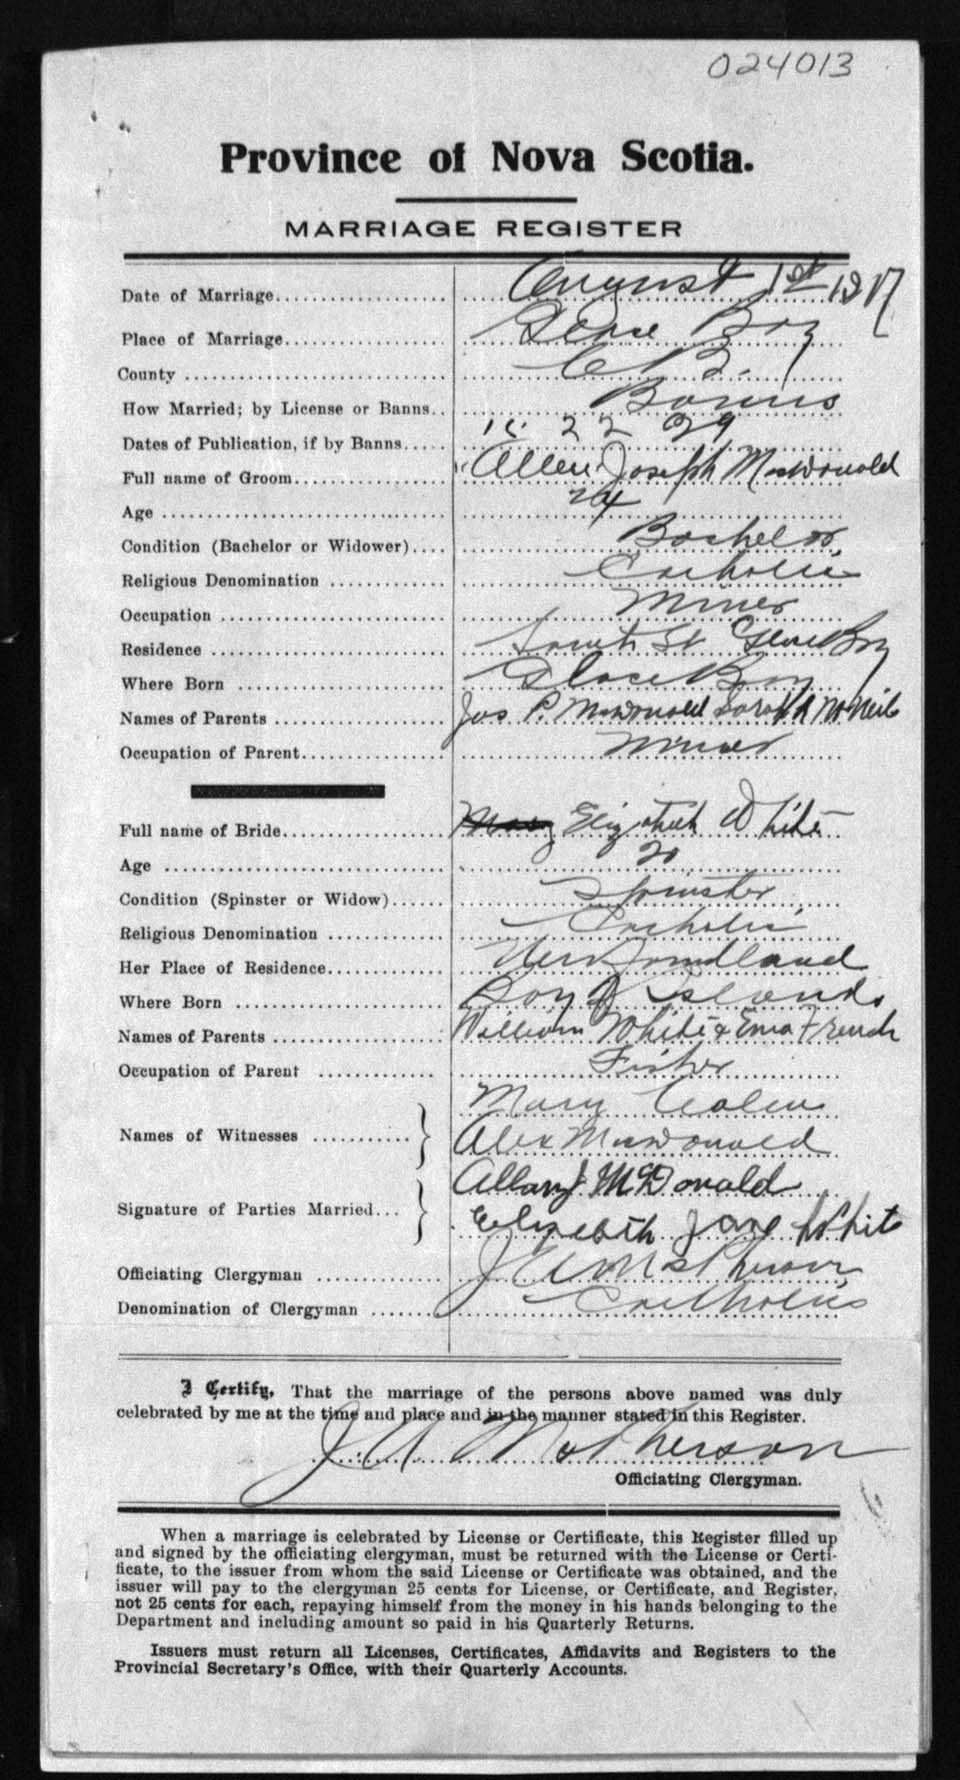 024013
Province of Nova Scotia.
MARRIAGE REGISTER
Date of Marriage August 1st 1917
Place of Marriage Glace Bay
County C B.
How Married; by License or Banns Banns
Dates of Publication, if by Banns 22 29
Full name of Groom Allen Joseph Macdonald
Age 24
Condition (Bachelor or Widower) Bachelor
Religious Denomination Catholic
Occupation Miner
Residence South St Glace Bay
Where Born Glace Bay
Names of Parents Jas P. Macdonald Sarah A McNeil
Occupation of Parent Miner
Full name of Bride Mary Elizabeth White
Age 20
Condition (Spinster or Widow) Spinster
Religious Denomination Catholic
Her Place of Residence Newfoundland
Where Born Bay of Islands
Names of Parents William White & Ema French
Occupation of Parent Fisher
Names of Witnesses Mary
Alex Macdonald
Signature of Parties Married Allan J McDonald
Elizabeth Jane White
Officiating Clergyman J A McPherson
Denomination of Clergyman Catholic
I Certify, That the marriage of the persons above named was duly
celebrated by me at the time and place and in the manner stated in this Register.
J A McPherson
Officiating Clergyman.
When a marriage is celebrated by License or Certificate, this Register filled up
and signed by the officiating clergyman, must be returned with the License or Certi-
ficate, to the issuer from whom the said License or Certificate was obtained, and the
issuer will pay to the clergyman 25 cents for License, or Certificate, and Register,
not 25 cents for each, repaying himself from the money in his hands belonging to the
Department and including amount so paid in his Quarterly Returns.
Issuers must return all Licenses, Certificates, Affidavits and Registers to the
Provincial Secretary's Office, with their Quarterly Accounts.